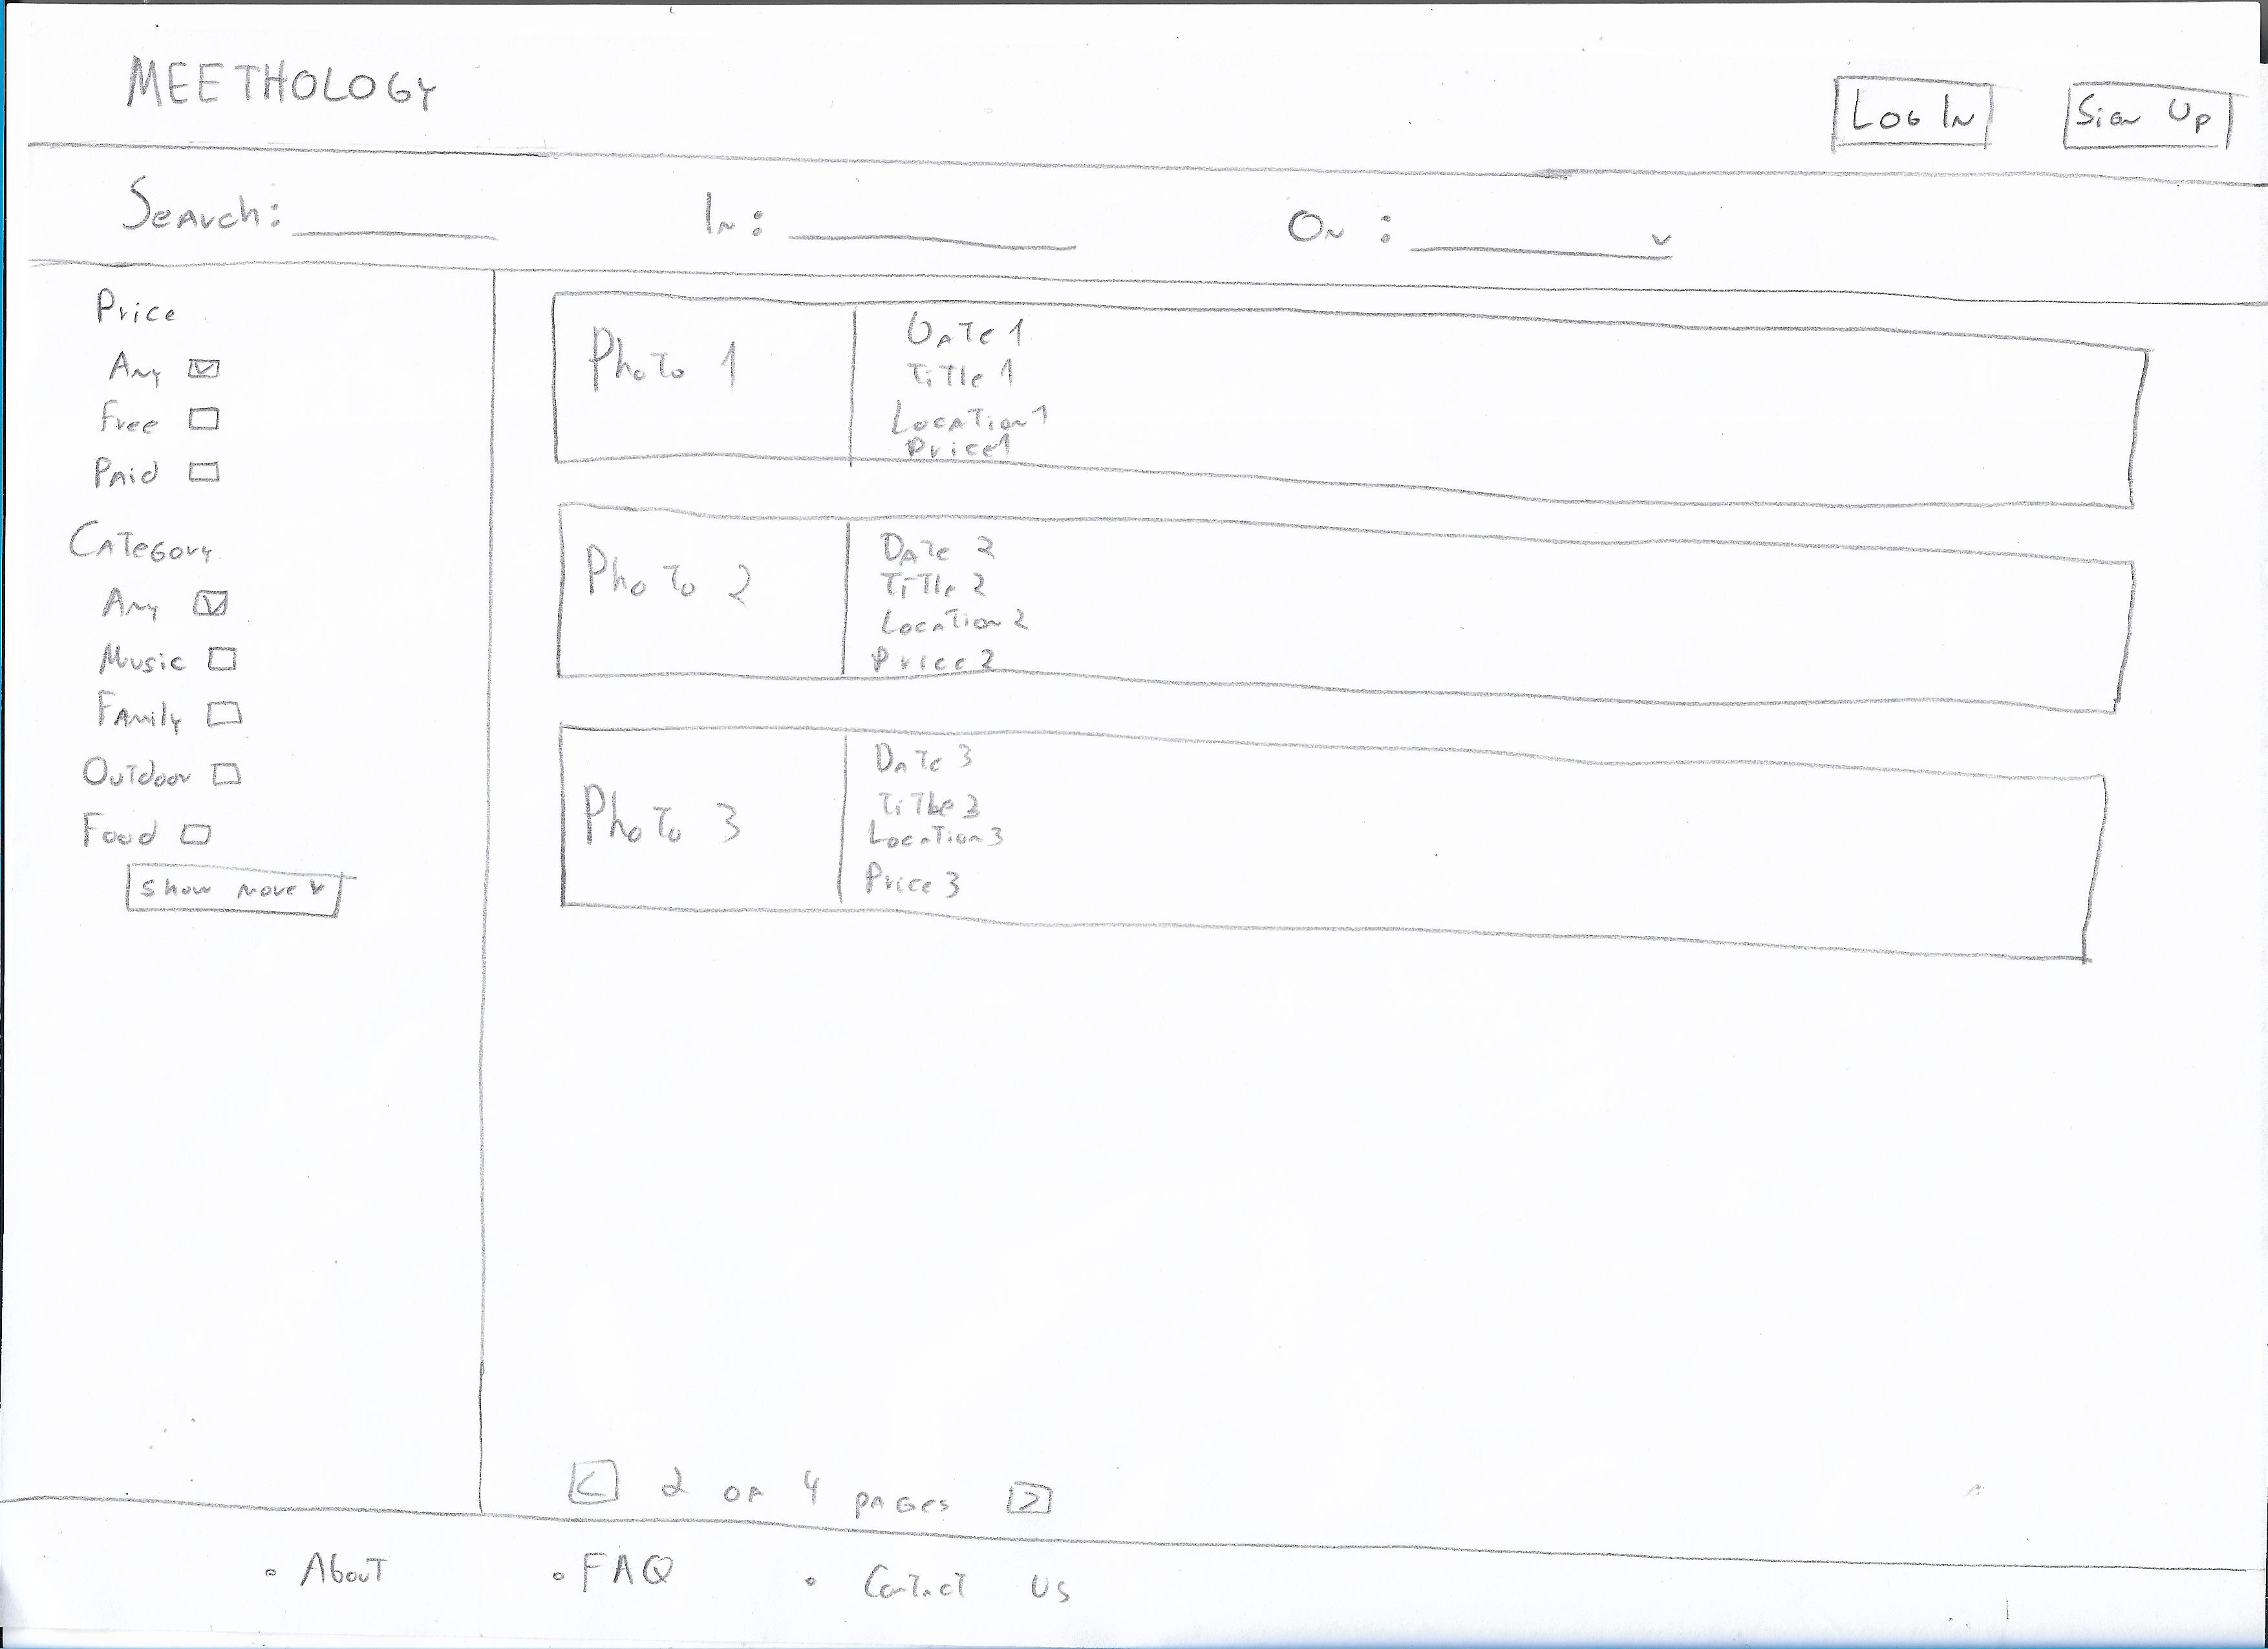 MEETHOLOGY
Log In
Sign Up
Search:
In:
On:
Price
Any
Free
Paid
Category
Any
Music
Family
Outdoor
Food
Show more
Photo 1
Date 1
Title 1
Location 1
Price 1
Photo 2
Date 2
Title 2
Location 2
Price 2
Photo 3
Date 3
Title 3
Location 3
Price 3
< 2 of 4 pages >
• About
• FAQ
• Contact us